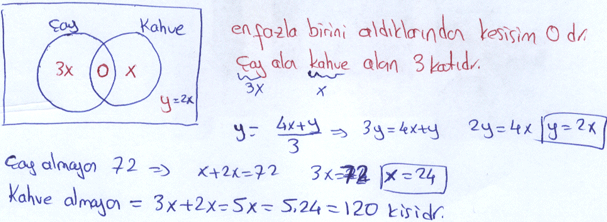 Çay
Kahve
3x 0 x
y=2x
en fazla birini aldıklarından kesişim 0 dır.
Çay alan kahve alan 3 katıdır.
3x x
y = 4x+y / 3 ⇒ 3y=4x+y 2y=4x y=2x
Çay almayan 72 ⇒ x+2x=72 3x=72 x=24
Kahve almayan = 3x+2x=5x=5.24=120 kişidir.